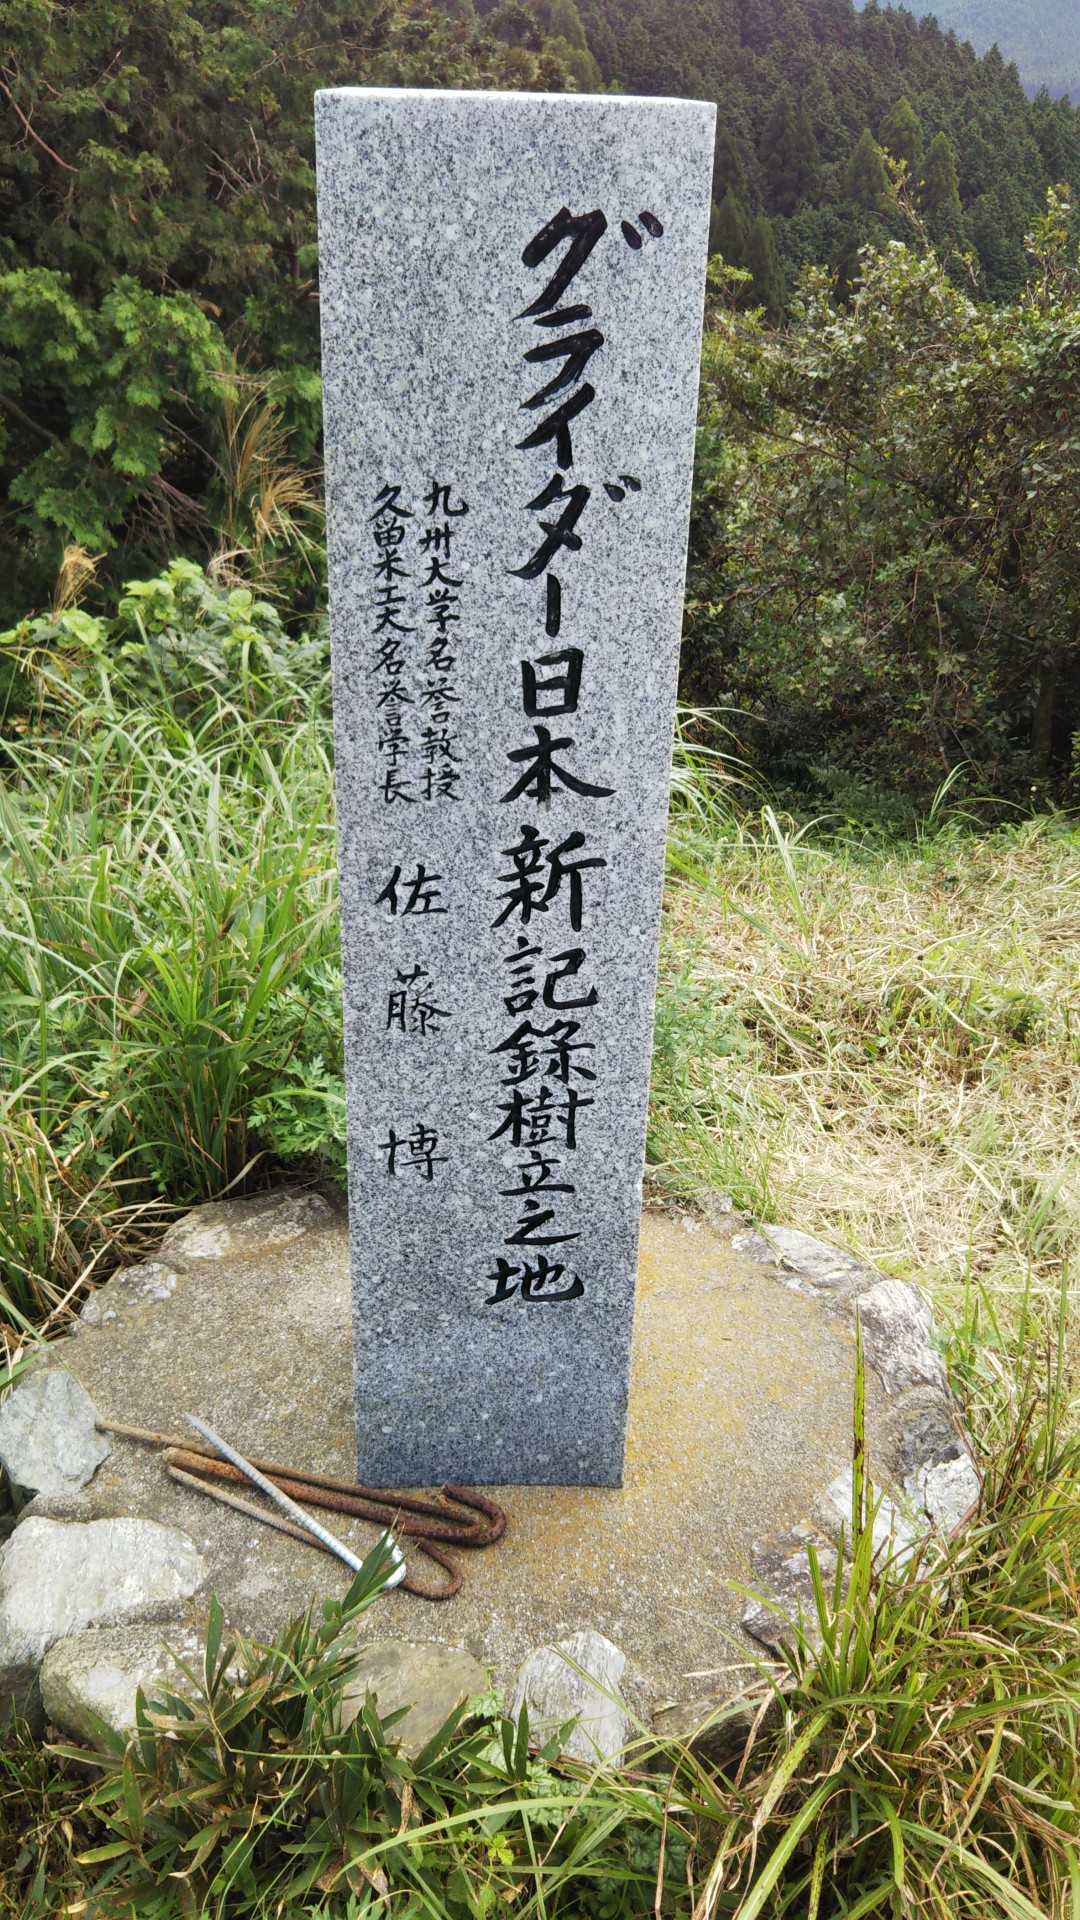 グライダー日本新記録樹立之地
九州大学名誉教授
久留米工大名誉学長
佐藤博